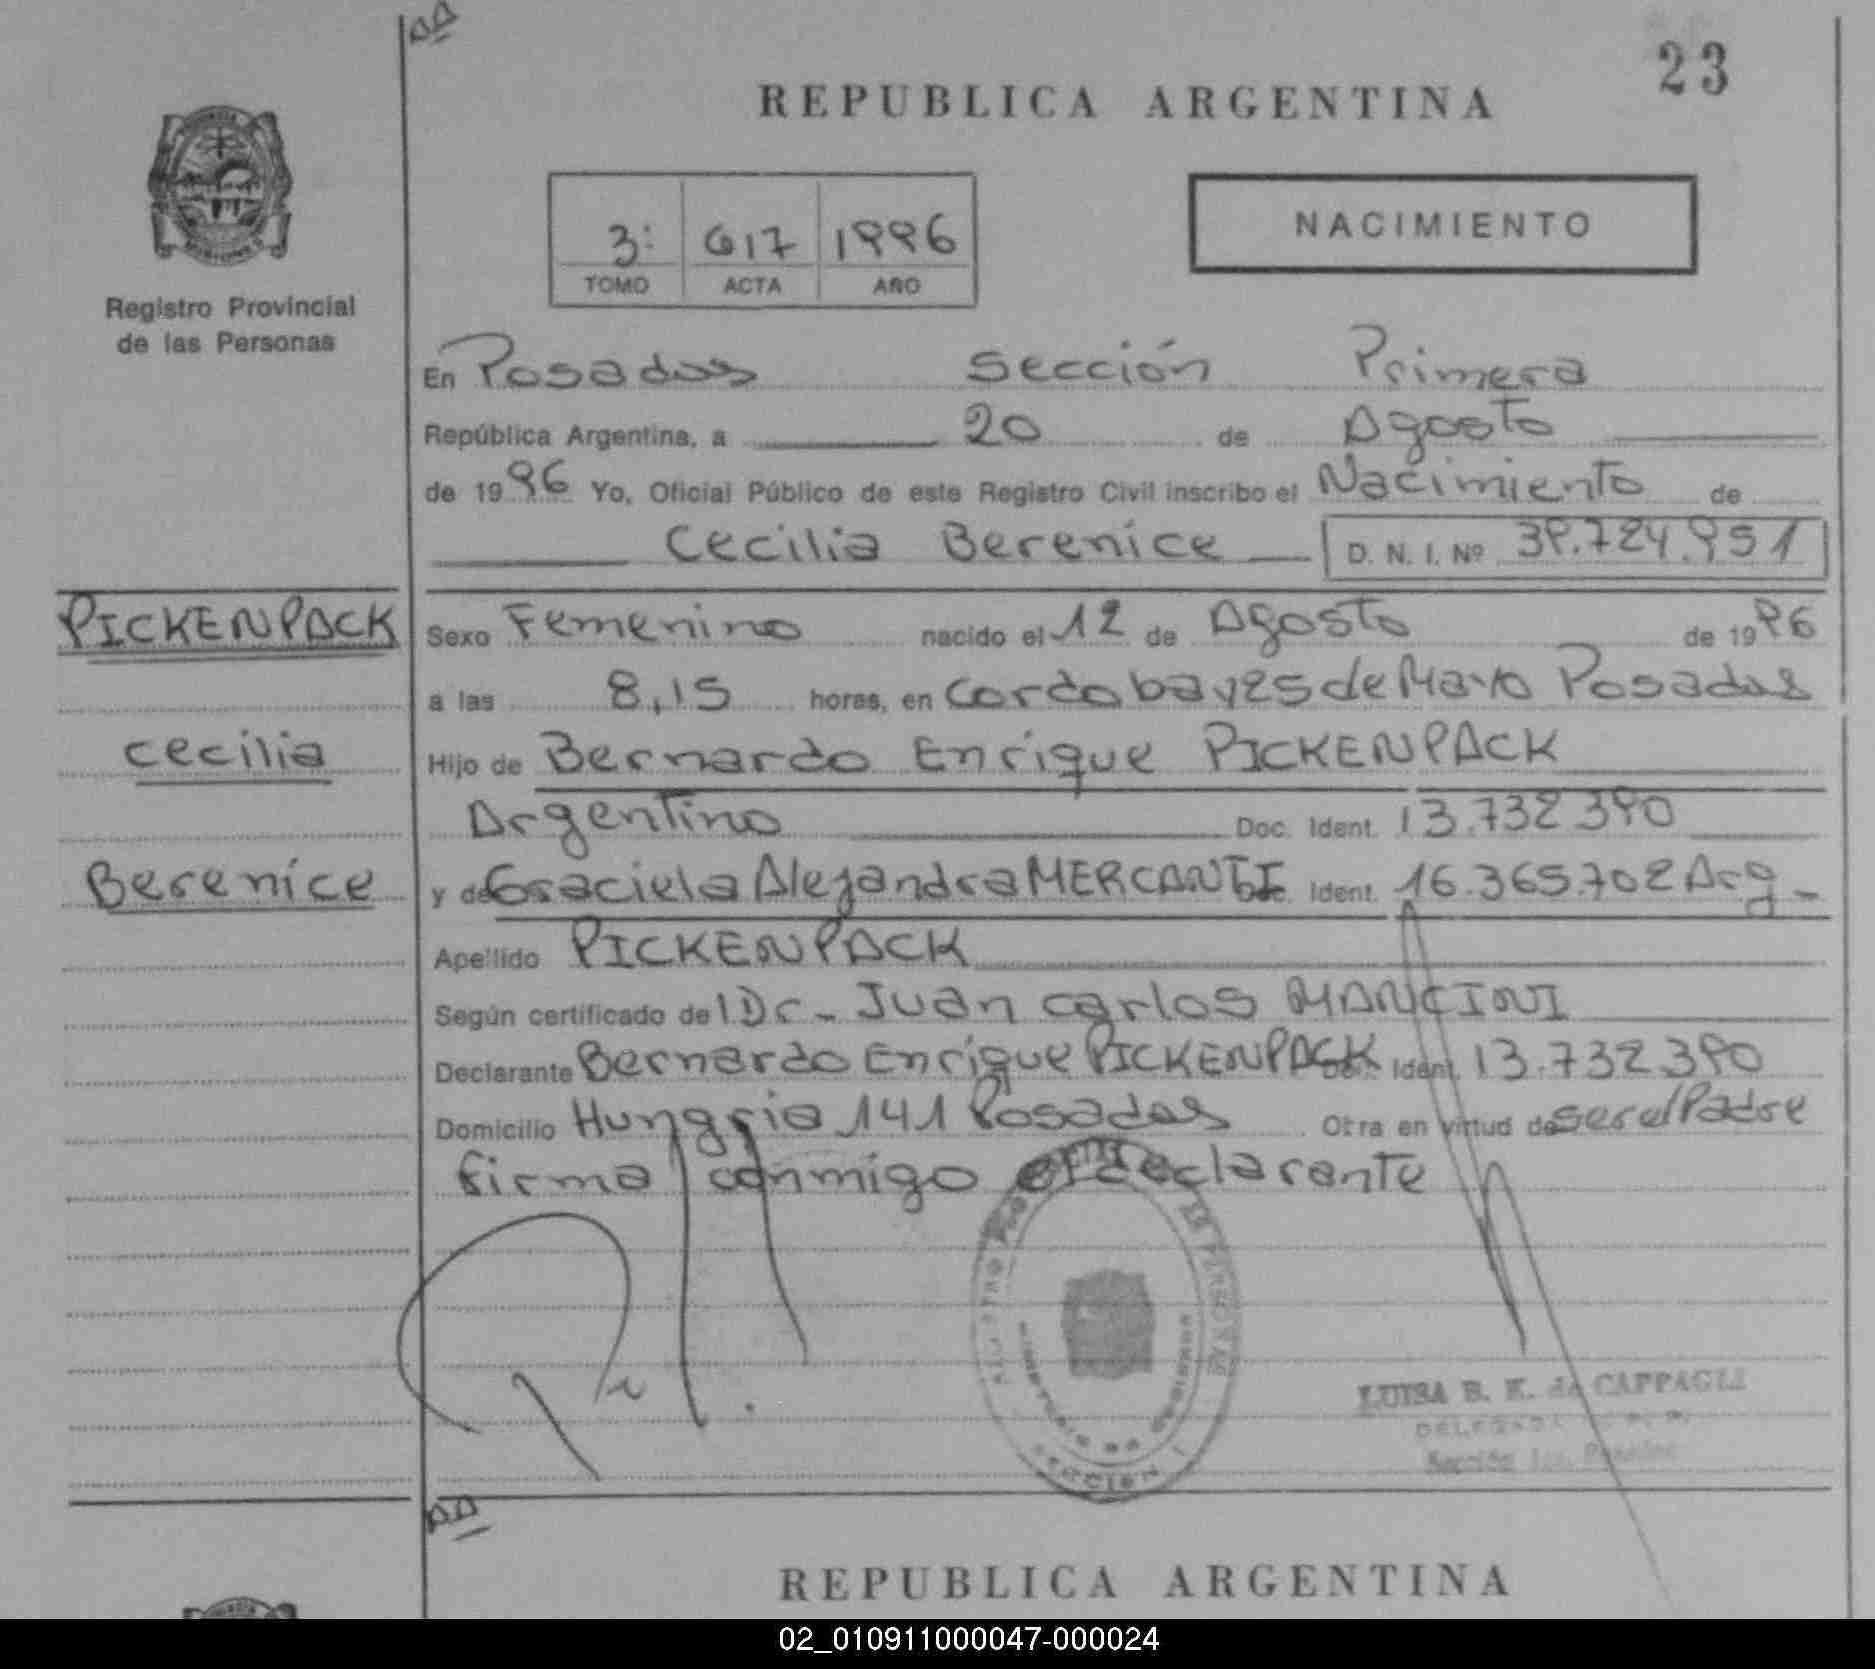 23
REPUBLICA ARGENTINA
NACIMIENTO
3: 617 1996
TOMO ACTA AÑO
Registro Provincial
de las Personas
En Posadas Sección Primera
República Argentina, a 20 de Agosto
de 1996 Yo, Oficial Público de este Registro Civil inscribo el Nacimiento de
Cecilia Berenice D. N. I. Nº 39.724.951
PICKENPACK
Cecilia
Berenice
Sexo Femenino nacido el 12 de Agosto de 1996
a las 8,15 horas, en Cordoba y 25 de Mayo Posadas
Hijo de Bernardo Enrique PICKENPACK
Argentino Doc. Ident. 13.732.390
y de Graciela Alejandra MERCANTI Doc. Ident. 16.365.702 Arg_
Apellido PICKENPACK
Según certificado del Dr_ Juan Carlos MANCINI
Declarante Bernardo Enrique PICKENPACK Doc. Ident. 13.732.390
Domicilio Hungria 141 Posadas Otra en virtud de ser el Padre
firma conmigo el declarante
LUISA B. K. de CAPPAGLI
DELEGADA
Sección 1ra. Posadas
SECCION 1
REPUBLICA ARGENTINA
02_010911000047-000024